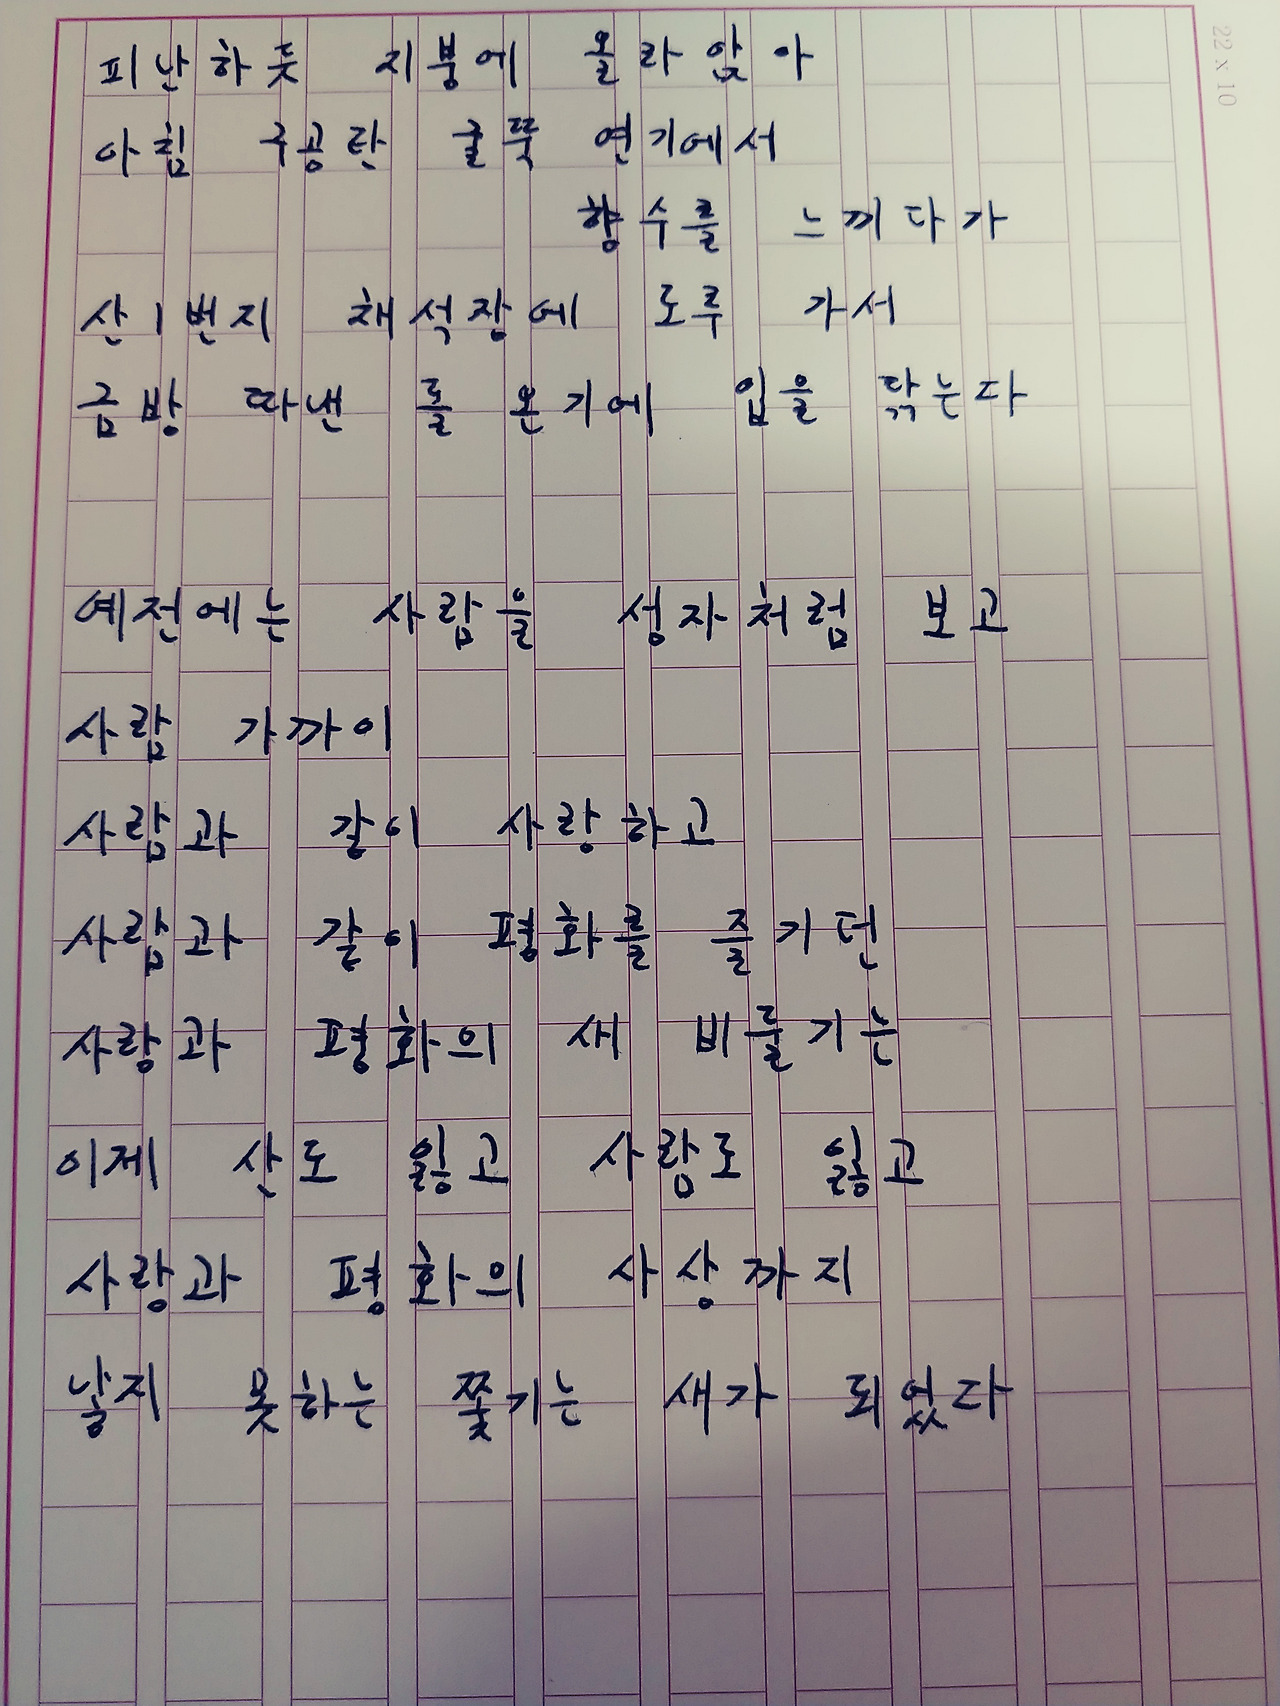 피난하듯 지붕에 올라앉아
아침 구공탄 굴뚝 연기에서
향수를 느끼다가
산1번지 채석장에 도루 가서
금방 따낸 돌 온기에 입을 닦는다
예전에는 사람을 성자처럼 보고
사람 가까이
사람과 같이 사랑하고
사람과 같이 평화를 즐기던
사랑과 평화의 새 비둘기는
이제 산도 잃고 사람도 잃고
사랑과 평화의 사상까지
낳지 못하는 쫓기는 새가 되었다
22 x 10